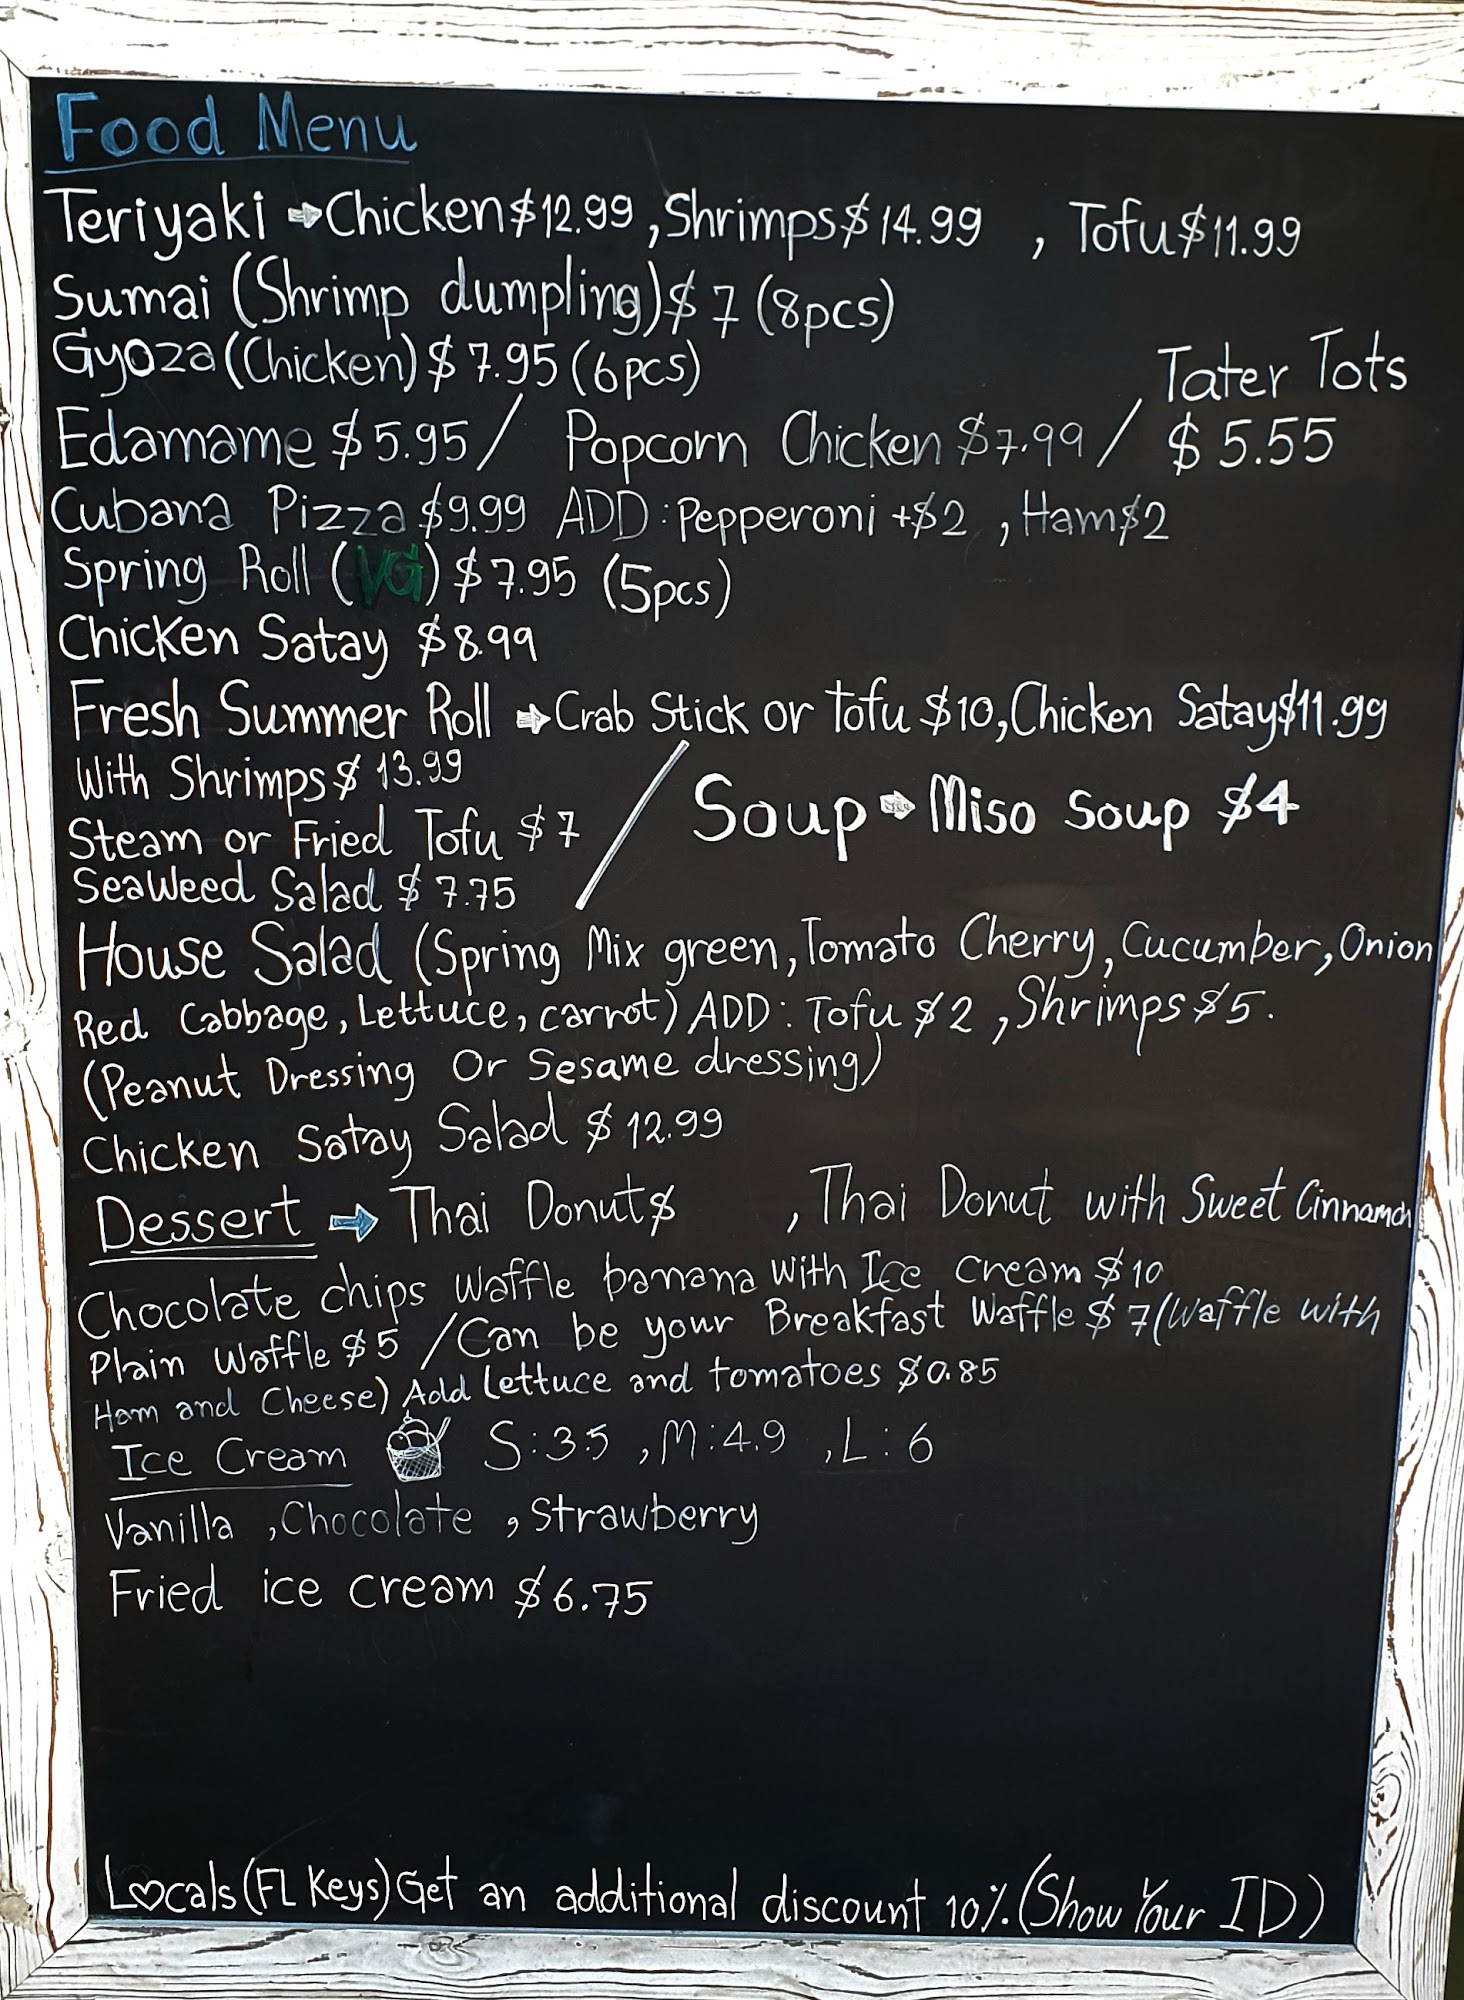 Food Menu
Teriyaki ➡ Chicken $12.99, Shrimps $14.99 , Tofu $11.99
Sumai (Shrimp dumpling) $7 (8pcs)
Gyoza (Chicken) $7.95 (6pcs)
Tater Tots
Edamame $5.95 / Popcorn Chicken $7.99 / $5.55
Cubana Pizza $9.99 ADD: Pepperoni +$2 , Ham $2
Spring Roll (VG) $7.95 (5pcs)
Chicken Satay $8.99
Fresh Summer Roll ➡ Crab Stick or tofu $10, Chicken Satay $11.99
With Shrimps $13.99
Soup ➡ Miso Soup $4
Steam or Fried Tofu $7
Seaweed Salad $7.75
House Salad (Spring Mix green, Tomato Cherry, Cucumber, Onion
Red Cabbage, Lettuce, carrot) ADD: Tofu $2, Shrimps $5.
(Peanut Dressing Or Sesame dressing)
Chicken Satay Salad $12.99
Dessert ➡ Thai Donut $ , Thai Donut with Sweet Cinnamon
Chocolate chips Waffle banana With Ice cream $10
Plain Waffle $5 / Can be your Breakfast Waffle $7 (Waffle with
Ham and Cheese) Add Lettuce and tomatoes $0.85
Ice Cream S: 3.5 , M: 4.9 , L: 6
Vanilla , Chocolate , Strawberry
Fried ice cream $6.75
Locals (FL Keys) Get an additional discount 10%. (Show Your ID)